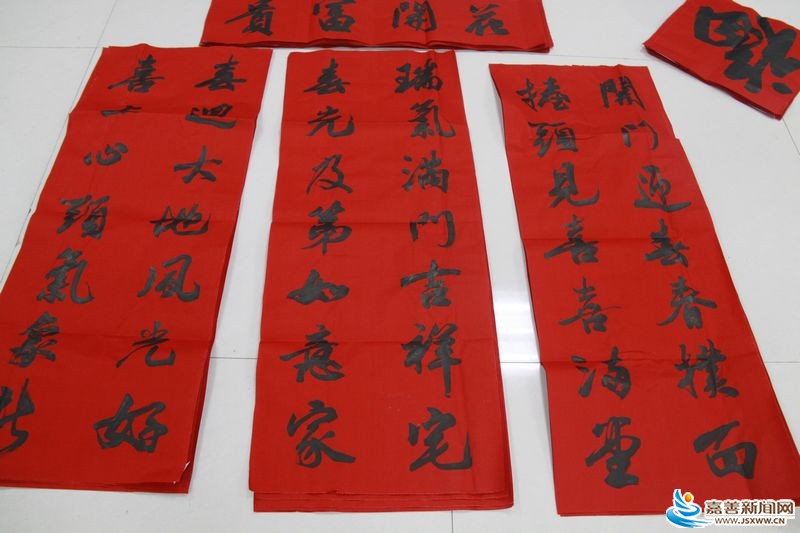 花開富貴
福
春迴大地風光好
喜心頭氣象新
瑞氣滿門吉祥宅
春光及第如意家
開門迎春春撲面
擡頭見喜喜满堂
嘉善新闻网
WWW.JSXWW.CN